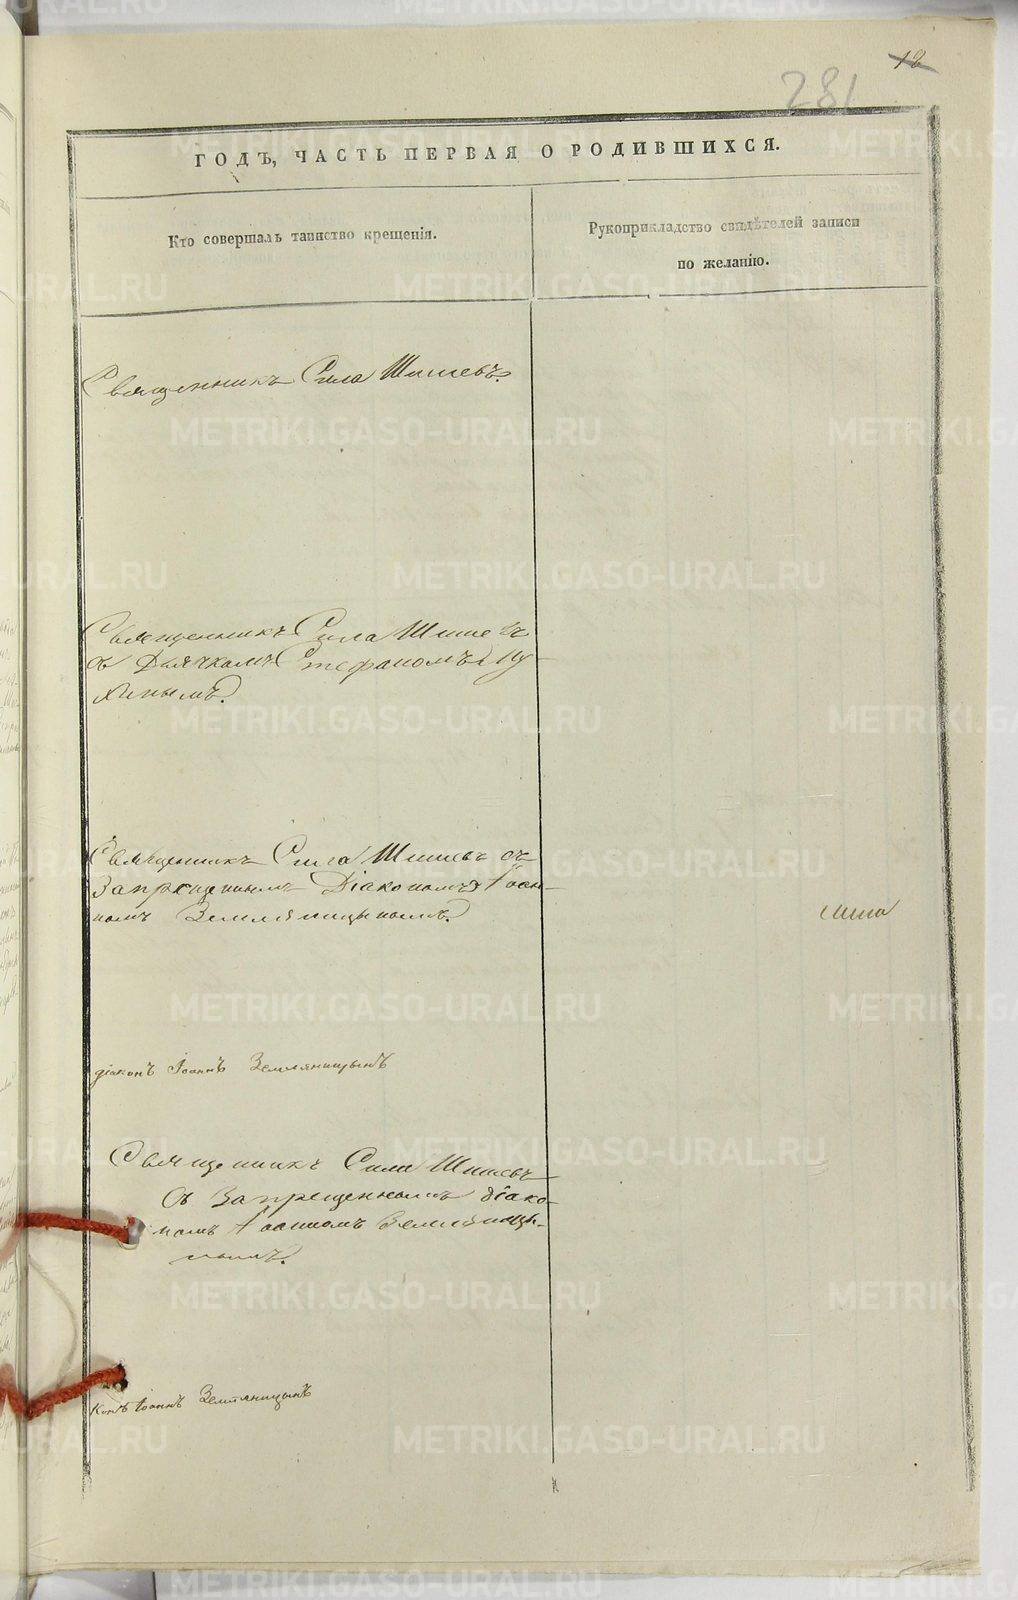 12
281
ГОДЪ, ЧАСТЬ ПЕРВАЯ О РОДИВШИХСЯ.
Кто совершалъ таинство крещенія.
Рукоприкладство свидѣтелей записи
по желанію.
Священникъ Сила Шишевъ.
Священникъ Сила Шишевъ
съ Дьячкомъ Стефаномъ
Священникъ Сила Шишевъ съ
Запрещеннымъ Діакономъ Іоан-
номъ Земляницынымъ.
діаконъ Іоаннъ Земляницынъ
Священникъ Сила Шишевъ
съ Запрещеннымъ діако-
номъ Іоанномъ Земляницы-
нымъ.
конъ Іоаннъ Земляницынъ
METRIKI.GASO-URAL.RU